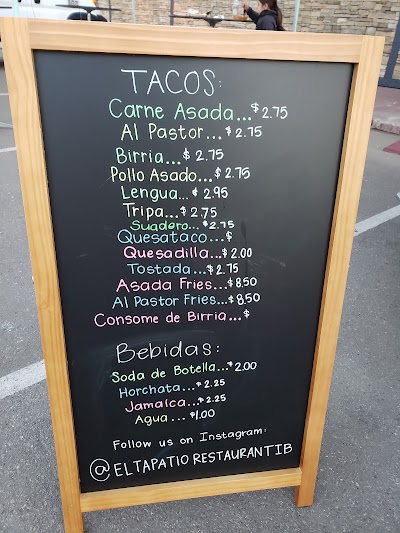 TACOS:
Carne Asada...$2.75
Al Pastor...$2.75
Birria...$2.75
Pollo Asado...$2.75
Lengua...$2.95
Tripa...$2.75
Suadero...$2.75
Quesataco...$
Quesadilla...$2.00
Tostada...$2.75
Asada Fries...$8.50
Al Pastor Fries...$8.50
Consome de Birria...$
Bebidas:
Soda de Botella...$2.00
Horchata...$2.25
Jamaica...$2.25
Agua...$1.00
Follow us on Instagram:
@ELTAPATIO RESTAURANTIB